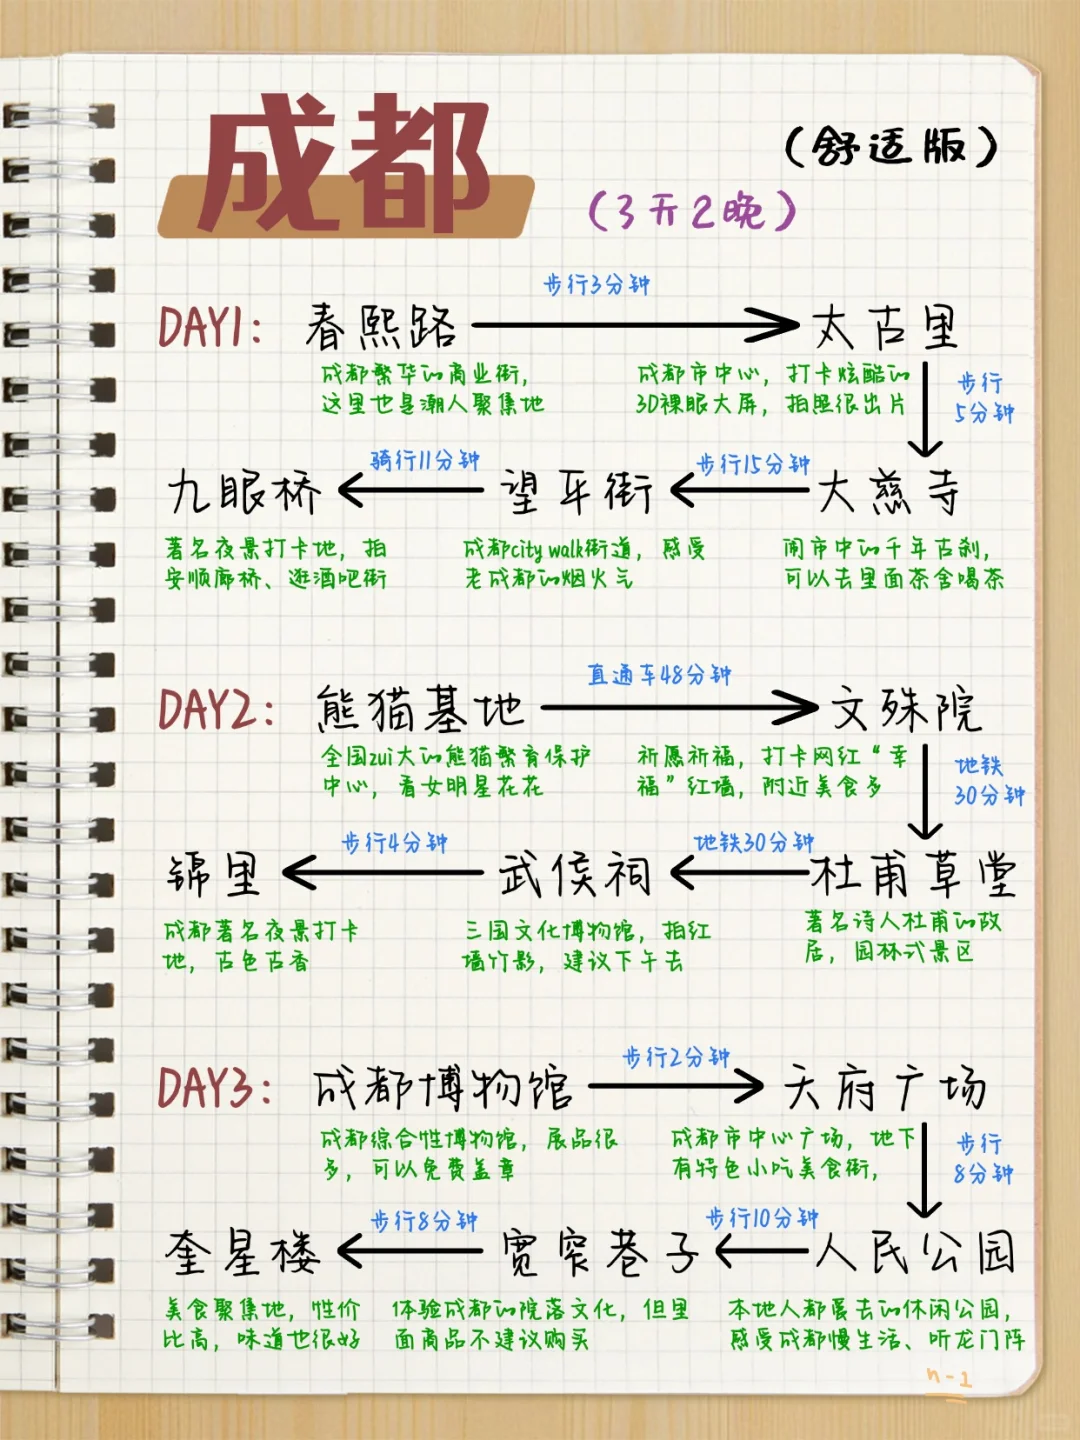 成都
（舒适版）
（3天2晚）
步行3分钟
DAY1： 春熙路 太古里
成都繁华的商业街，
这里也是潮人聚集地
成都市中心，打卡炫酷的
3D裸眼大屏，拍照很出片
步行
5分钟
骑行11分钟
步行15分钟
九眼桥 望平街 大慈寺
著名夜景打卡地，拍
安顺廊桥、逛酒吧街
成都city walk街道，感受
老成都的烟火气
闹市中的千年古刹，
可以去里面茶舍喝茶
直通车48分钟
DAY2： 熊猫基地 文殊院
全国zui大的熊猫繁育保护
中心，看女明星花花
祈愿祈福，打卡网红“幸
福”红墙，附近美食多
地铁
30分钟
步行4分钟
地铁30分钟
锦里 武侯祠 杜甫草堂
成都著名夜景打卡
地，古色古香
三国文化博物馆，拍红
墙竹影，建议下午去
著名诗人杜甫的故
居，园林式景区
步行2分钟
DAY3： 成都博物馆 天府广场
成都综合性博物馆，展品很
多，可以免费盖章
成都市中心广场，地下
有特色小吃美食街，
步行
8分钟
步行8分钟
步行10分钟
奎星楼 宽窄巷子 人民公园
美食聚集地，性价
比高，味道也很好
体验成都的院落文化，但里
面商品不建议购买
本地人都爱去的休闲公园，
感受成都慢生活、听龙门阵
n-1